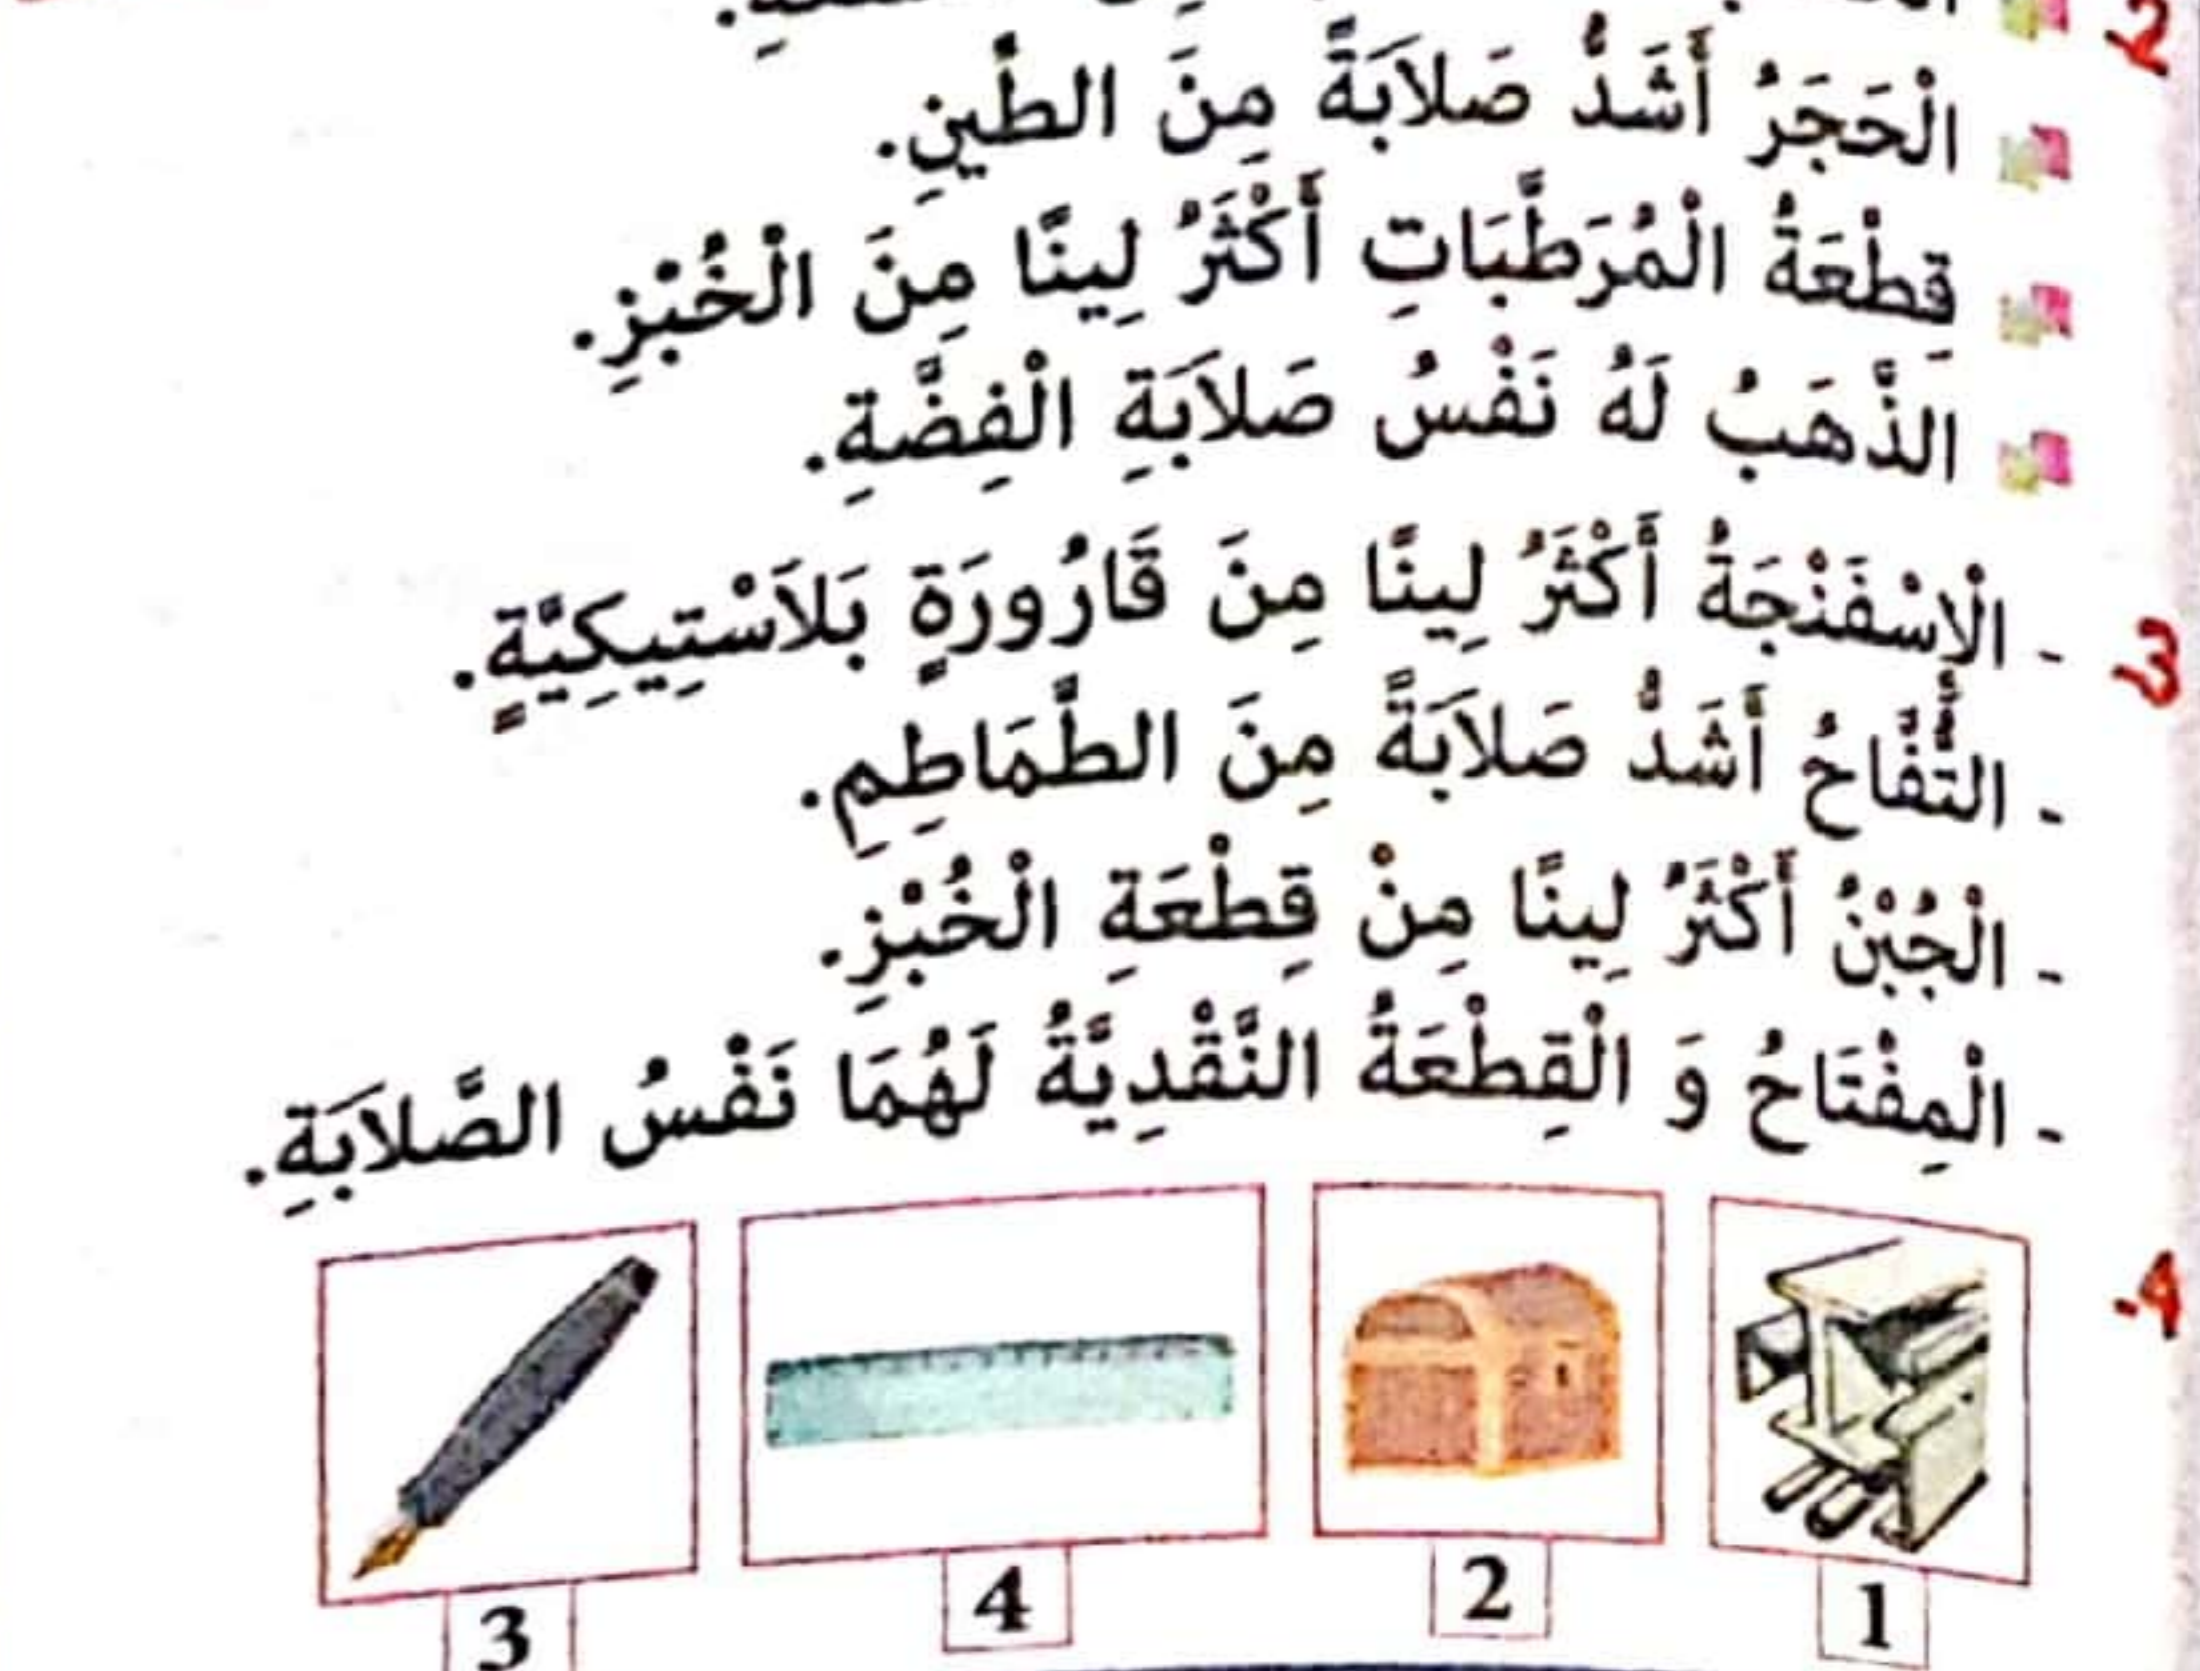 2
الْحَجَرُ أَشَدُّ صَلاَبَةً مِنَ الطِّينِ.
قِطْعَةُ الْمُرَطَّبَاتِ أَكْثَرُ لِينًا مِنَ الْخُبْزِ.
الذَّهَبُ لَهُ نَفْسُ صَلاَبَةِ الْفِضَّةِ.
3 - الْإِسْفَنْجَةُ أَكْثَرُ لِينًا مِنَ قَارُورَةٍ بَلاَسْتِيكِيَّةٍ.
- التُّفَّاحُ أَشَدُّ صَلاَبَةً مِنَ الطَّمَاطِمِ.
- الْجُبْنُ أَكْثَرُ لِينًا مِنْ قِطْعَةِ الْخُبْزِ.
- الْمِفْتَاحُ وَ الْقِطْعَةُ النَّقْدِيَّةُ لَهُمَا نَفْسُ الصَّلاَبَةِ.
4.
1 2 4 3